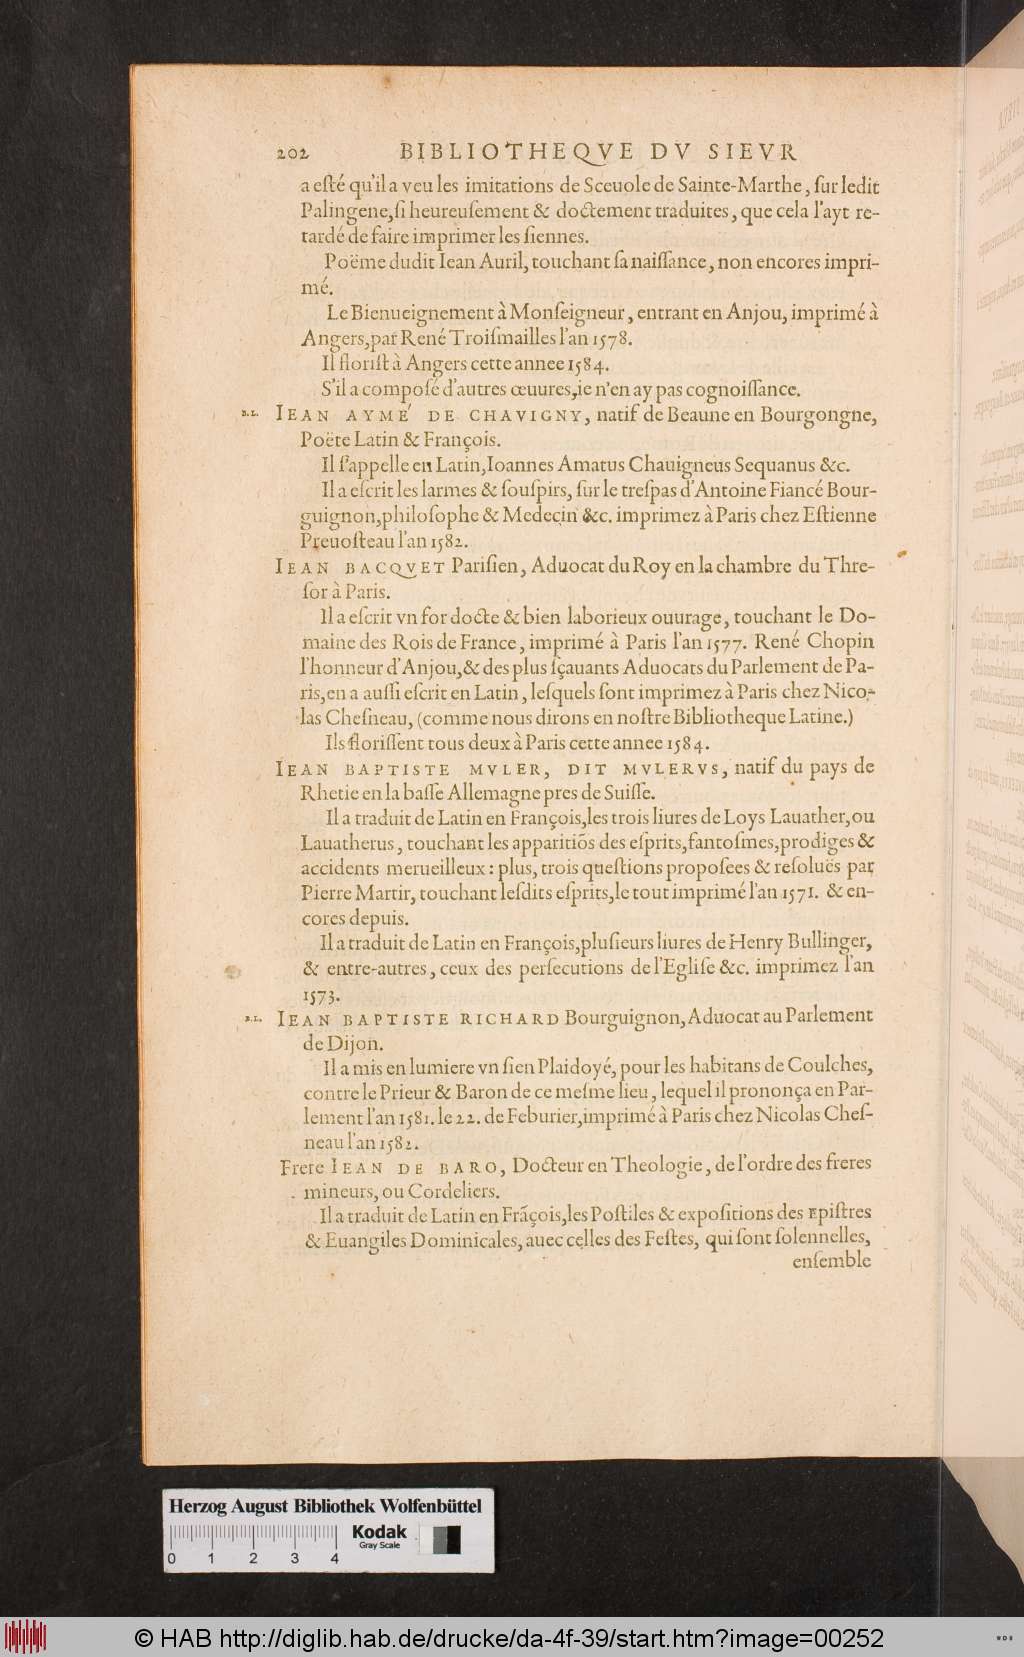 202 BIBLIOTHEQVE DV SIEVR
a esté qu'il a veu les imitations de Sceuole de Sainte-Marthe, ſur ledit
Palingene, ſi heureuſement & doctement traduites, que cela l'ayt re-
tardé de faire imprimer les ſiennes.
Poëme dudit Iean Auril, touchant ſa naiſſance, non encores impri-
mé.
Le Bienueignement à Monſeigneur, entrant en Anjou, imprimé à
Angers, par René Troiſmailles l'an 1578.
Il floriſt à Angers cette annee 1584.
S'il a compoſé d'autres œuures, ie n'en ay pas cognoiſſance.
B.L. IEAN AYMÉ DE CHAVIGNY, natif de Beaune en Bourgongne,
Poëte Latin & François.
Il ſ'appelle en Latin, Ioannes Amatus Chauigneus Sequanus &c.
Il a eſcrit les larmes & ſouſpirs, ſur le treſpas d'Antoine Fiancé Bour-
guignon, philoſophe & Medecin &c. imprimez à Paris chez Eſtienne
Preuoſteau l'an 1582.
IEAN BACQVET Pariſien, Aduocat du Roy en la chambre du Thre-
ſor à Paris.
Il a eſcrit vn for docte & bien laborieux ouurage, touchant le Do-
maine des Rois de France, imprimé à Paris l'an 1577. René Chopin
l'honneur d'Anjou, & des plus ſçauants Aduocats du Parlement de Pa-
ris, en a auſſi eſcrit en Latin, leſquels ſont imprimez à Paris chez Nico-
las Cheſneau, (comme nous dirons en noſtre Bibliotheque Latine.)
Ils floriſſent tous deux à Paris cette annee 1584.
IEAN BAPTISTE MVLER, DIT MVLERVS, natif du pays de
Rhetie en la baſſe Allemagne pres de Suiſſe.
Il a traduit de Latin en François, les trois liures de Loys Lauather, ou
Lauatherus, touchant les apparitiõs des eſprits, fantoſmes, prodiges &
accidents merueilleux: plus, trois queſtions propoſees & reſoluës par
Pierre Martir, touchant leſdits eſprits, le tout imprimé l'an 1571. & en-
cores depuis.
Il a traduit de Latin en François, pluſieurs liures de Henry Bullinger,
& entre-autres, ceux des perſecutions de l'Egliſe &c. imprimez l'an
1573.
B.L. IEAN BAPTISTE RICHARD Bourguignon, Aduocat au Parlement
de Dijon.
Il a mis en lumiere vn ſien Plaidoyé, pour les habitans de Coulches,
contre le Prieur & Baron de ce meſme lieu, lequel il prononça en Par-
lement l'an 1581. le 22. de Feburier, imprimé à Paris chez Nicolas Cheſ-
neau l'an 1582.
Frere IEAN DE BARO, Docteur en Theologie, de l'ordre des freres
mineurs, ou Cordeliers.
Il a traduit de Latin en Frãçois, les Poſtiles & expoſitions des Epiſtres
& Euangiles Dominicales, auec celles des Feſtes, qui ſont ſolennelles,
enſemble
Herzog August Bibliothek Wolfenbüttel
Kodak
Gray Scale
0 1 2 3 4
© HAB http://diglib.hab.de/drucke/da-4f-39/start.htm?image=00252